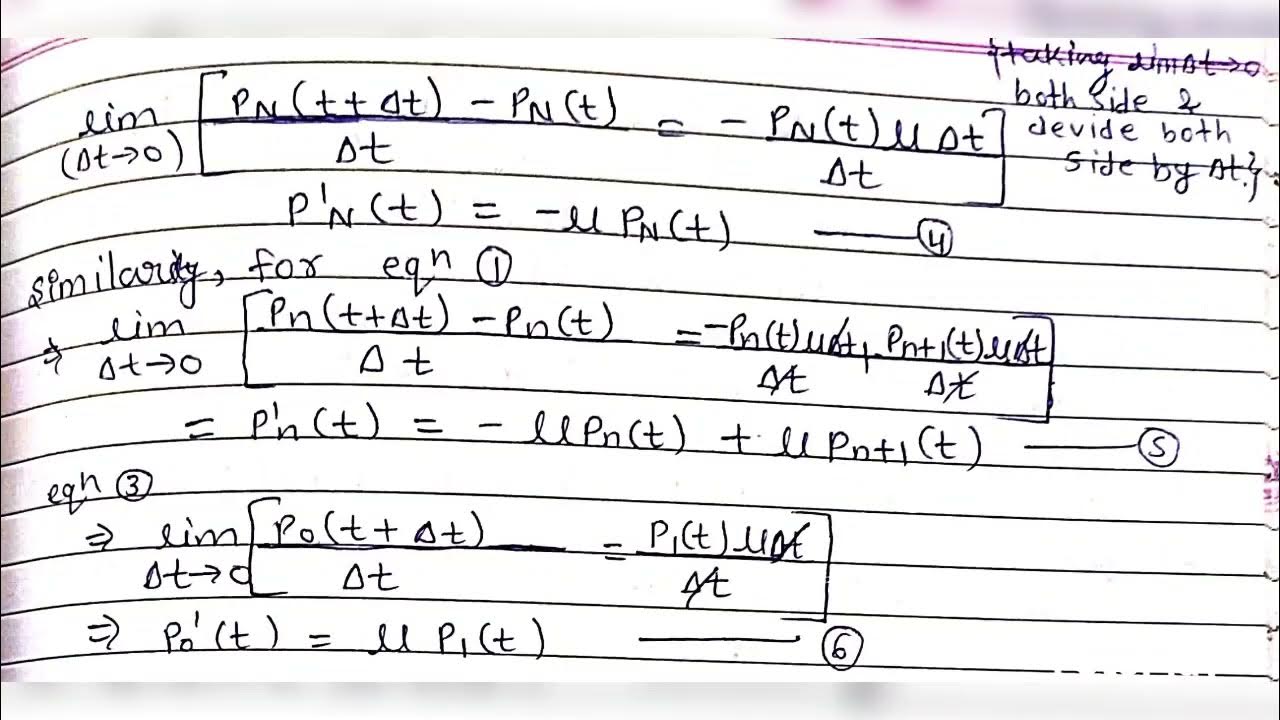 {taking lim Δt→0
both side &
devide both
side by Δt.}
lim (Δt→0) [ (PN(t+Δt) - PN(t)) / Δt = - PN(t) μ Δt / Δt ]
P'N(t) = -μ PN(t) —— ④
similarity, for eqn ①
⇒ lim Δt→0 [ (Pn(t+Δt) - Pn(t)) / Δt = -Pn(t) μΔt / Δt + Pn+1(t) μΔt / Δt ]
= P'n(t) = - μPn(t) + μ Pn+1(t) —— ⑤
eqn ③
⇒ lim Δt→0 [ P0(t+Δt) / Δt = P1(t) μΔt / Δt ]
⇒ P0'(t) = μ P1(t) —— ⑥